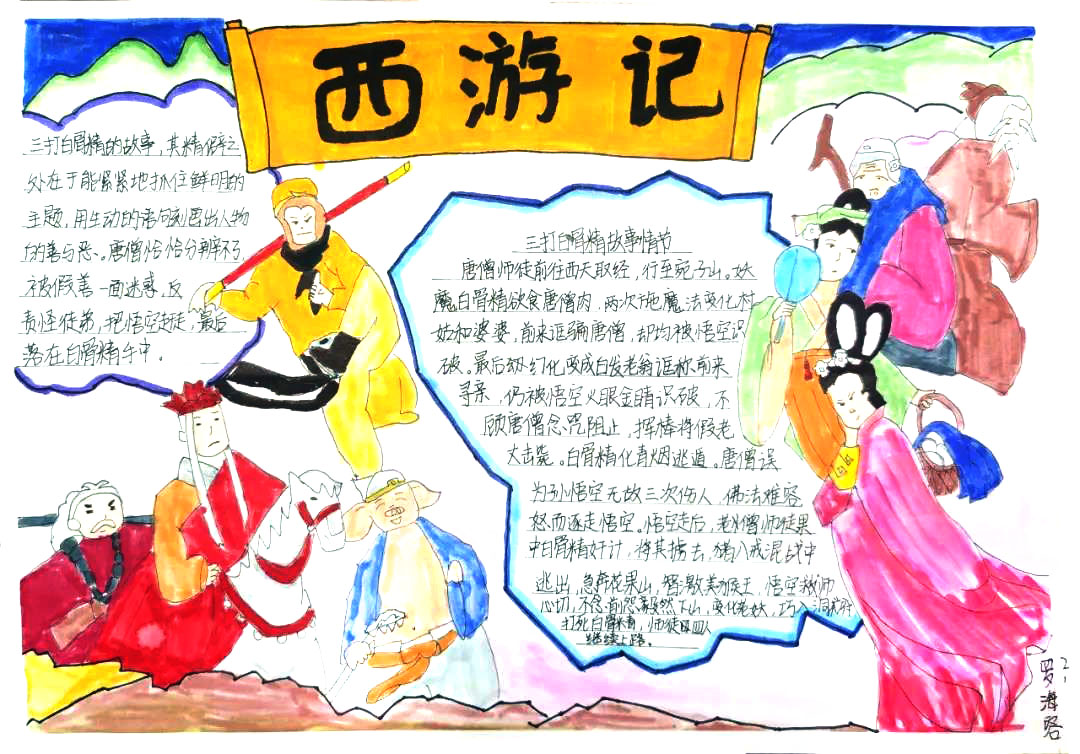 西游记
三打白骨精的故事，其精僻之
处在于能紧紧地抓住鲜明的
主题，用生动的语句刻画出人物
的善与恶。唐僧恰恰分辨不了，
被假善一面迷惑，反
责怪徒弟，把悟空赶走，最后
落在白骨精手中。
三打白骨精故事情节
唐僧师徒前往西天取经，行至宛子山。妖
魔白骨精欲食唐僧肉，两次施魔法变化村
姑和婆婆，前来诓骗唐僧，却均被悟空识
破。最后幻化变成白发老翁诓称前来
寻亲，仍被悟空火眼金睛识破，不
顾唐僧念咒阻止，挥棒将假老
击毙。白骨精化青烟逃遁。唐僧误
为孙悟空无故三次伤人，佛法难容
怒而逐走悟空。悟空走后，唐僧师徒果
中白骨精奸计，将其掳去，猪八戒混战中
逃出，急奔花果山，智激美猴王，悟空救师
心切，不念前怨毅然下山，变化老妖，巧入洞府
打死白骨精，师徒四人
继续上路。
罗海